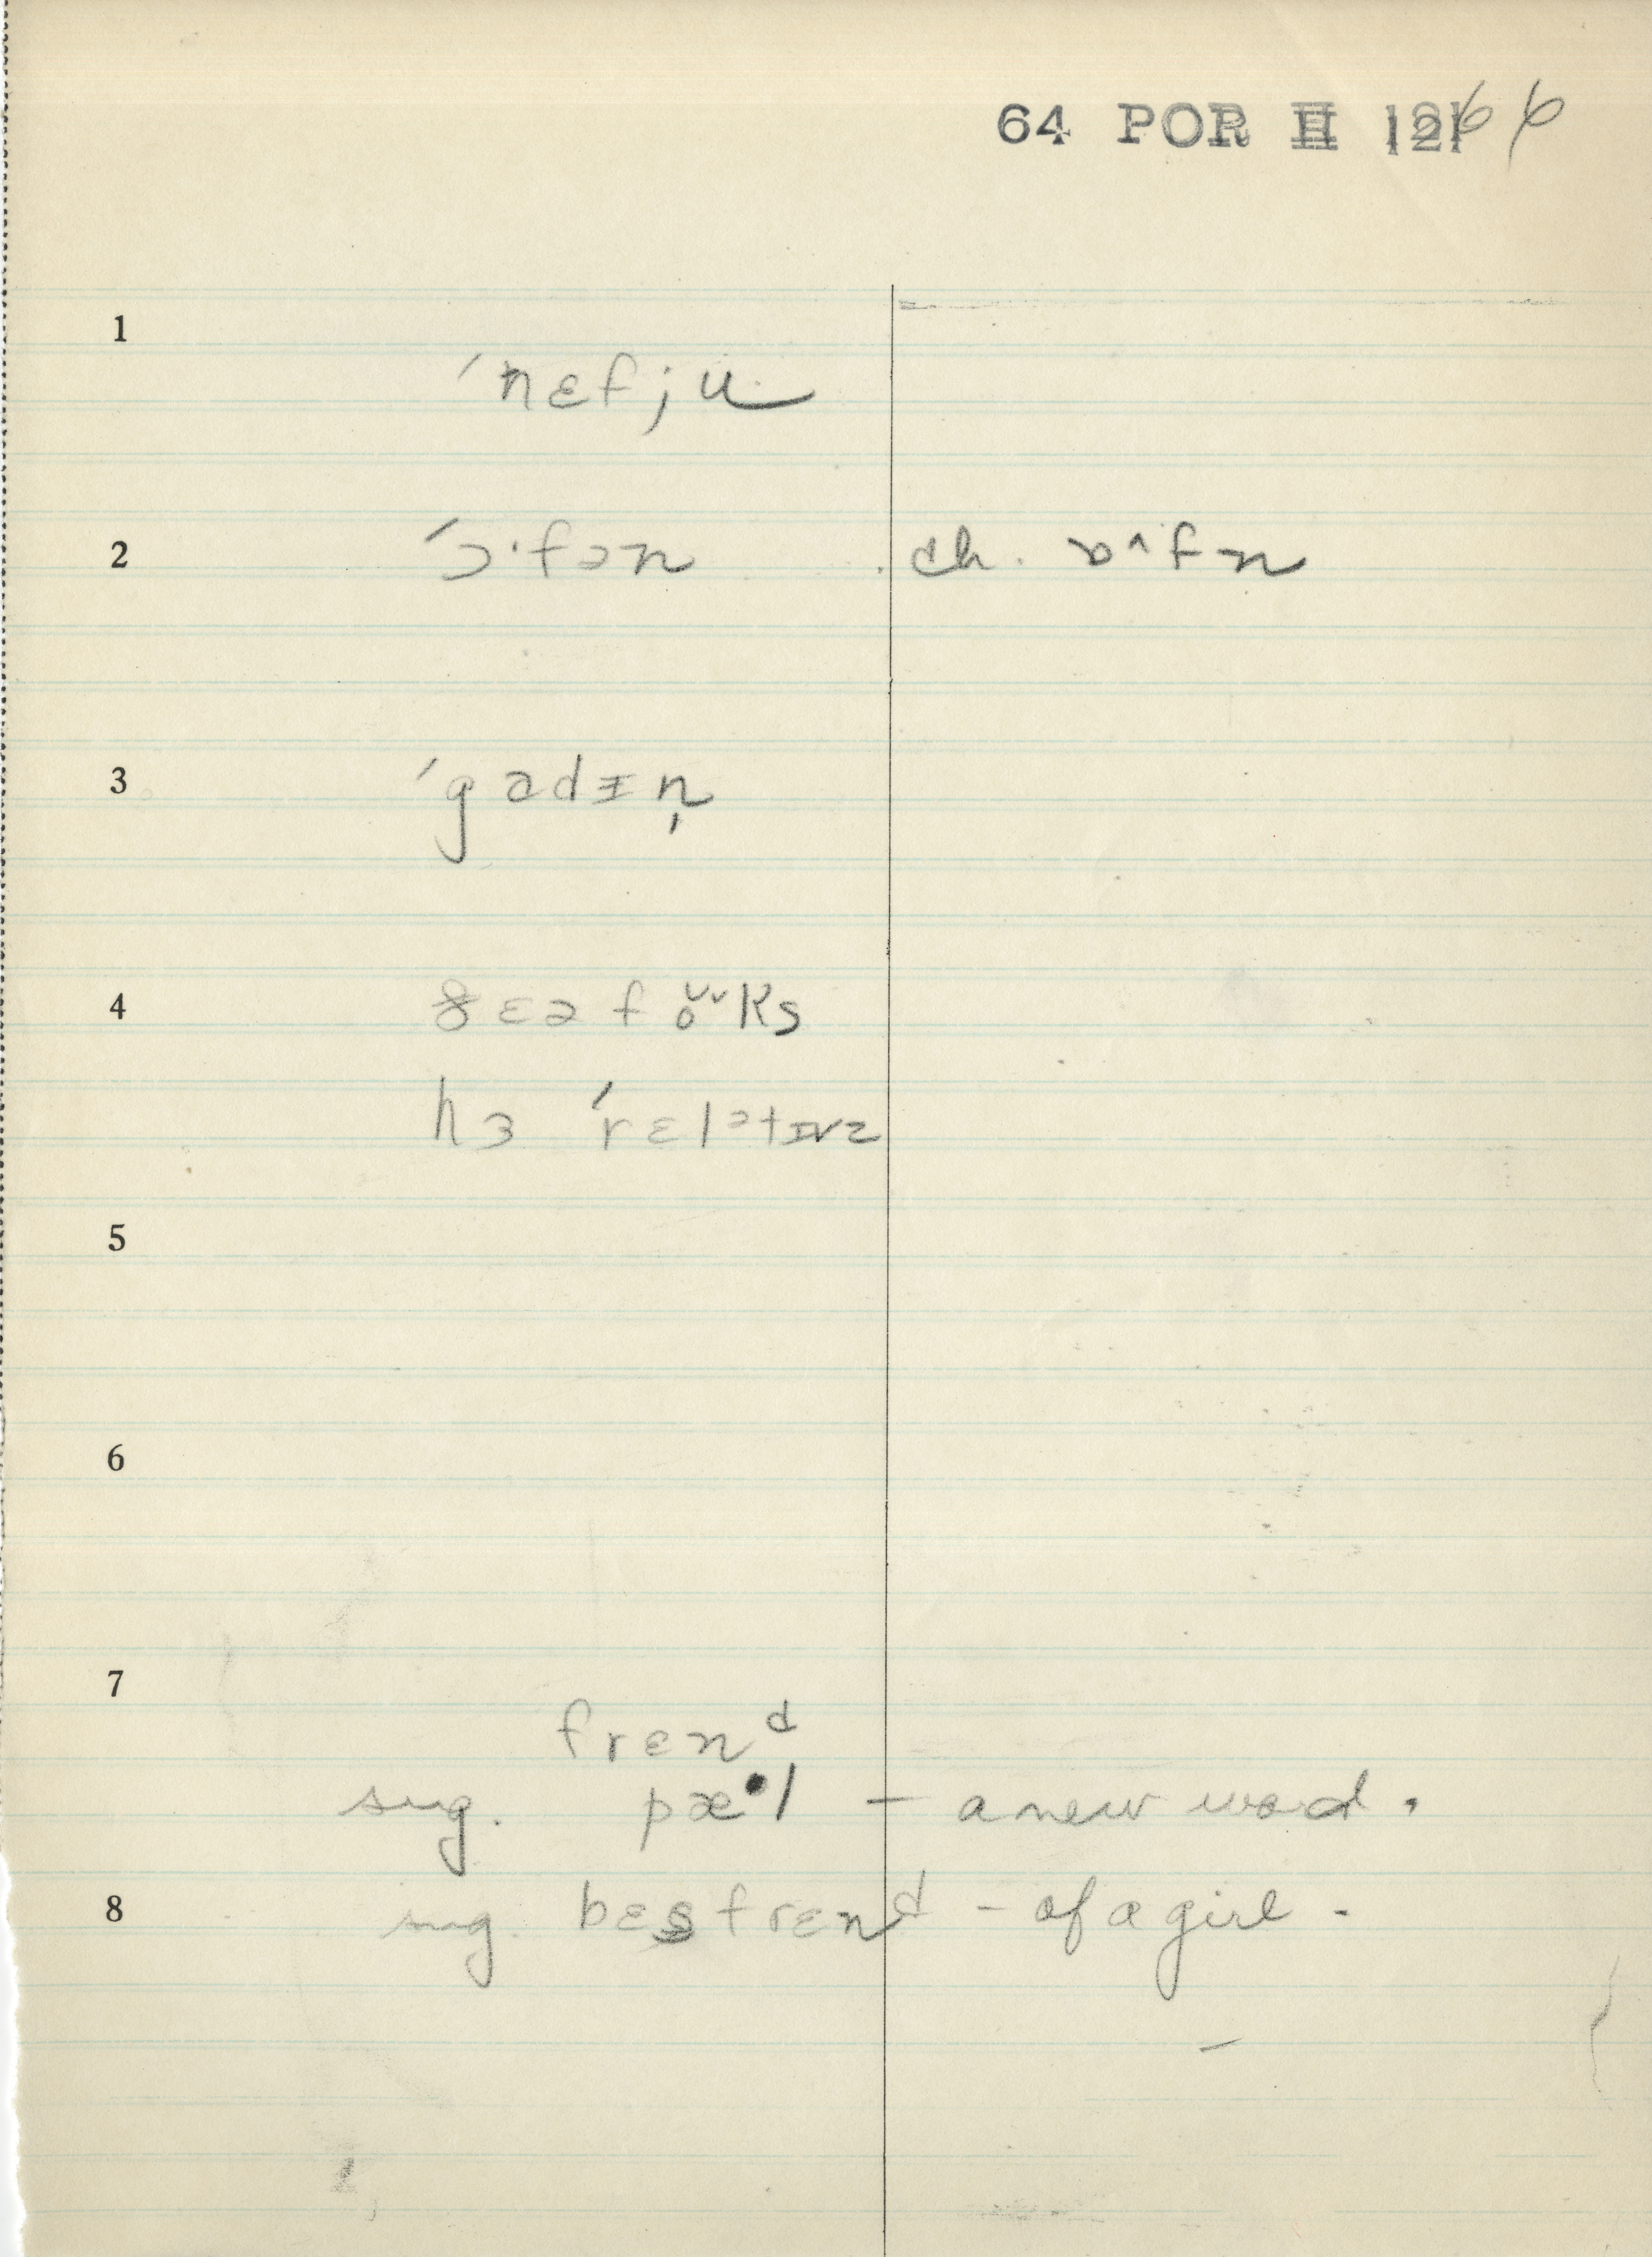 64 POR H 66
1
ˈnɛfju
2 ˈɔ·fən ch. ɒ^fn
3 ˈgɑdɪn̩
4 ðɛə foʊks
hɜ ˈrɛlətɪvz
5
6
7
frɛnᵈ
sug. pæ·l – a new word.
8 sug. bɛsfrɛnᵈ – of a girl.